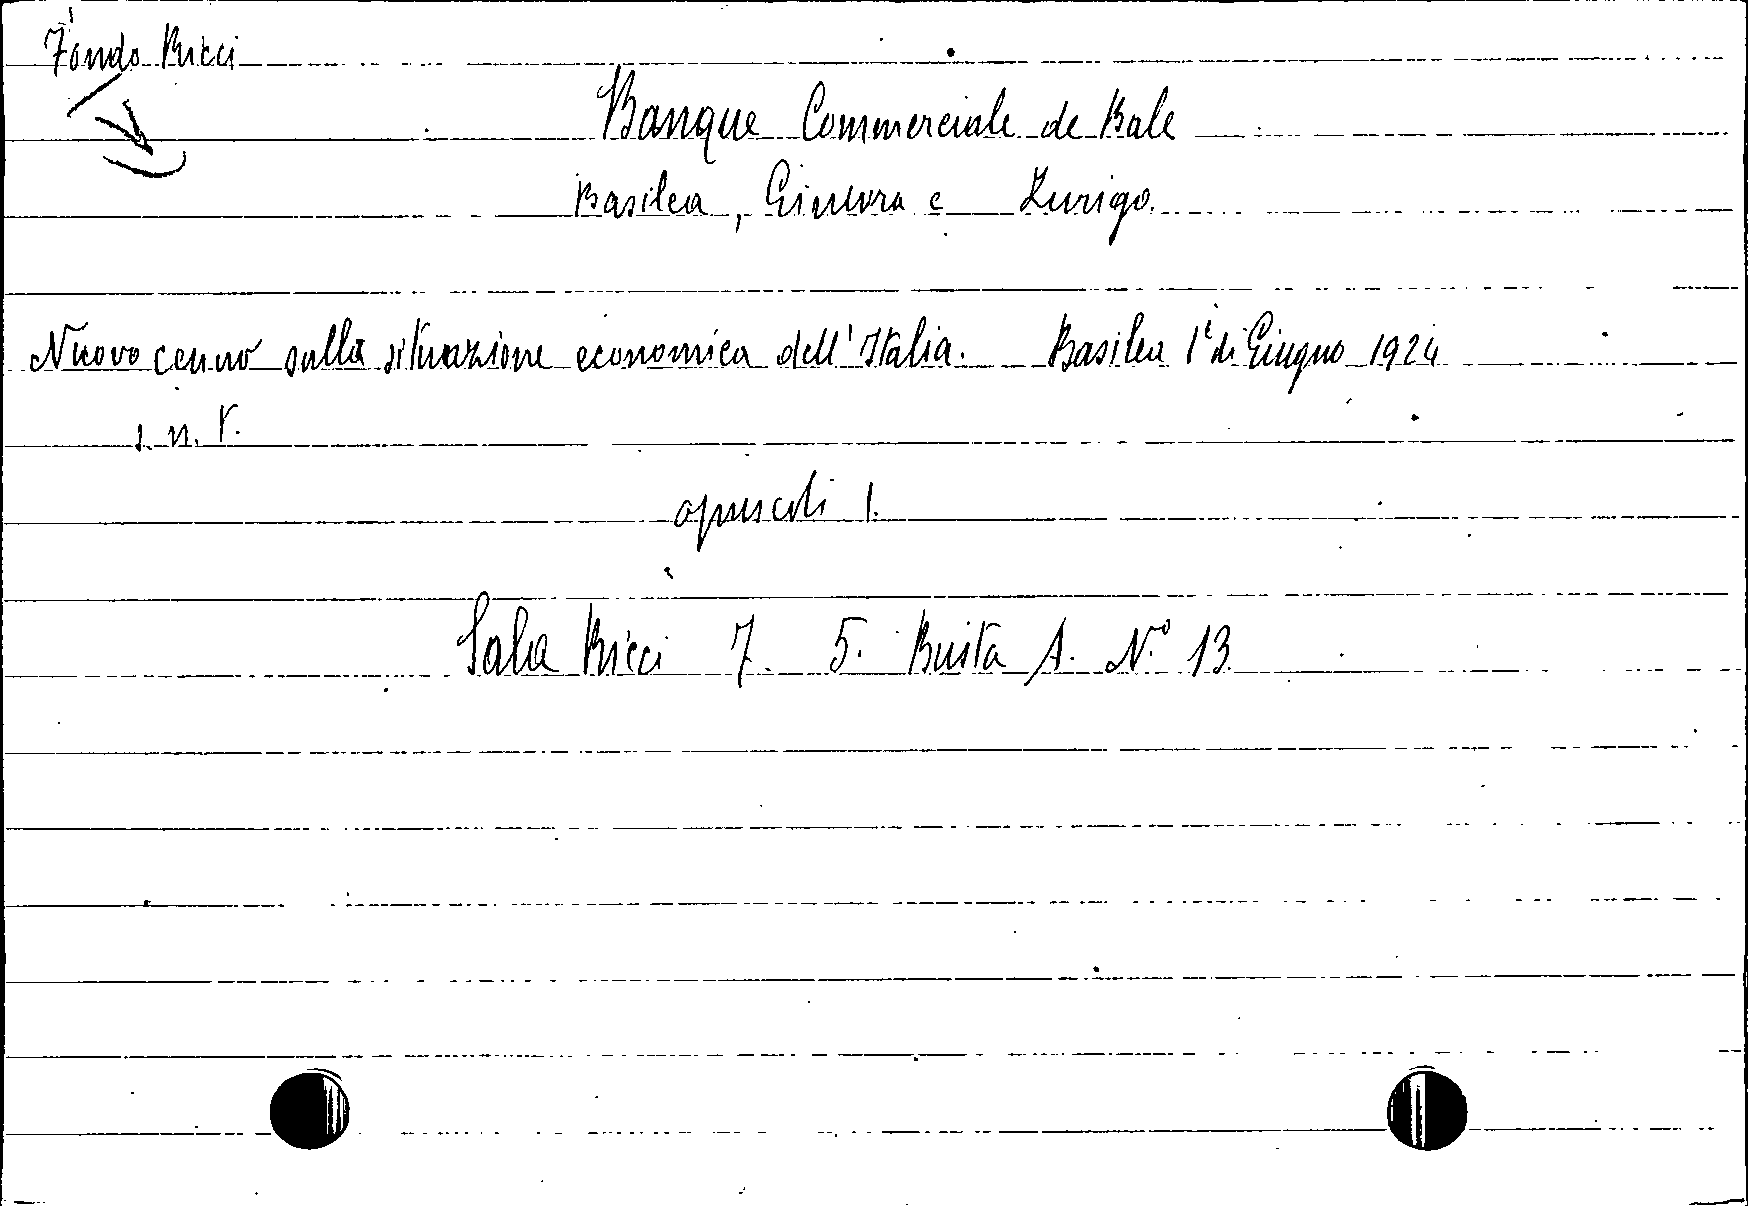 Fondo Ricci
Banque Commerciale de Bale
Basilea, Ginevra e Zurigo.
Nuovo cenno sulla situazione economica dell'Italia. Basilea 1° di Giugno 1924
s. n. t.
opuscoli 1.
Sala Ricci 7. 5. Busta A. N.° 13